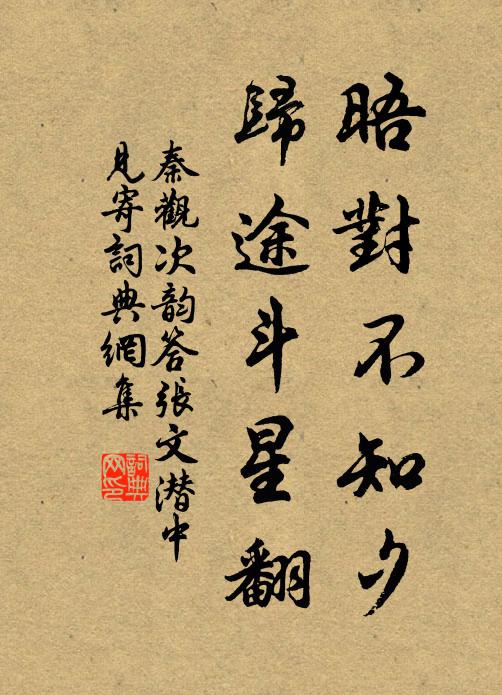 晤對不知夕
歸途斗星翻
秦觀次韵答張文潛中
見寄詞典網集
詞典
网印